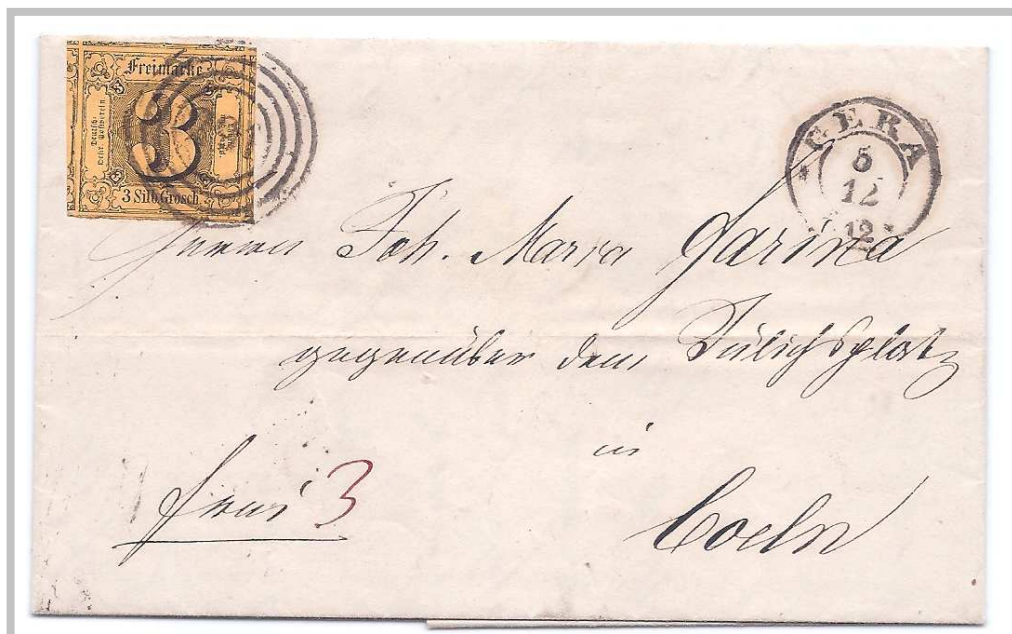 Freimarke
Deutsch-
Oestr. Postverein.
3
3 Silb. Grosch.
GERA
5
12
12
Herrn Joh. Maria Farina
gegenüber dem Jülichsplatz
in
Coeln
frei 3